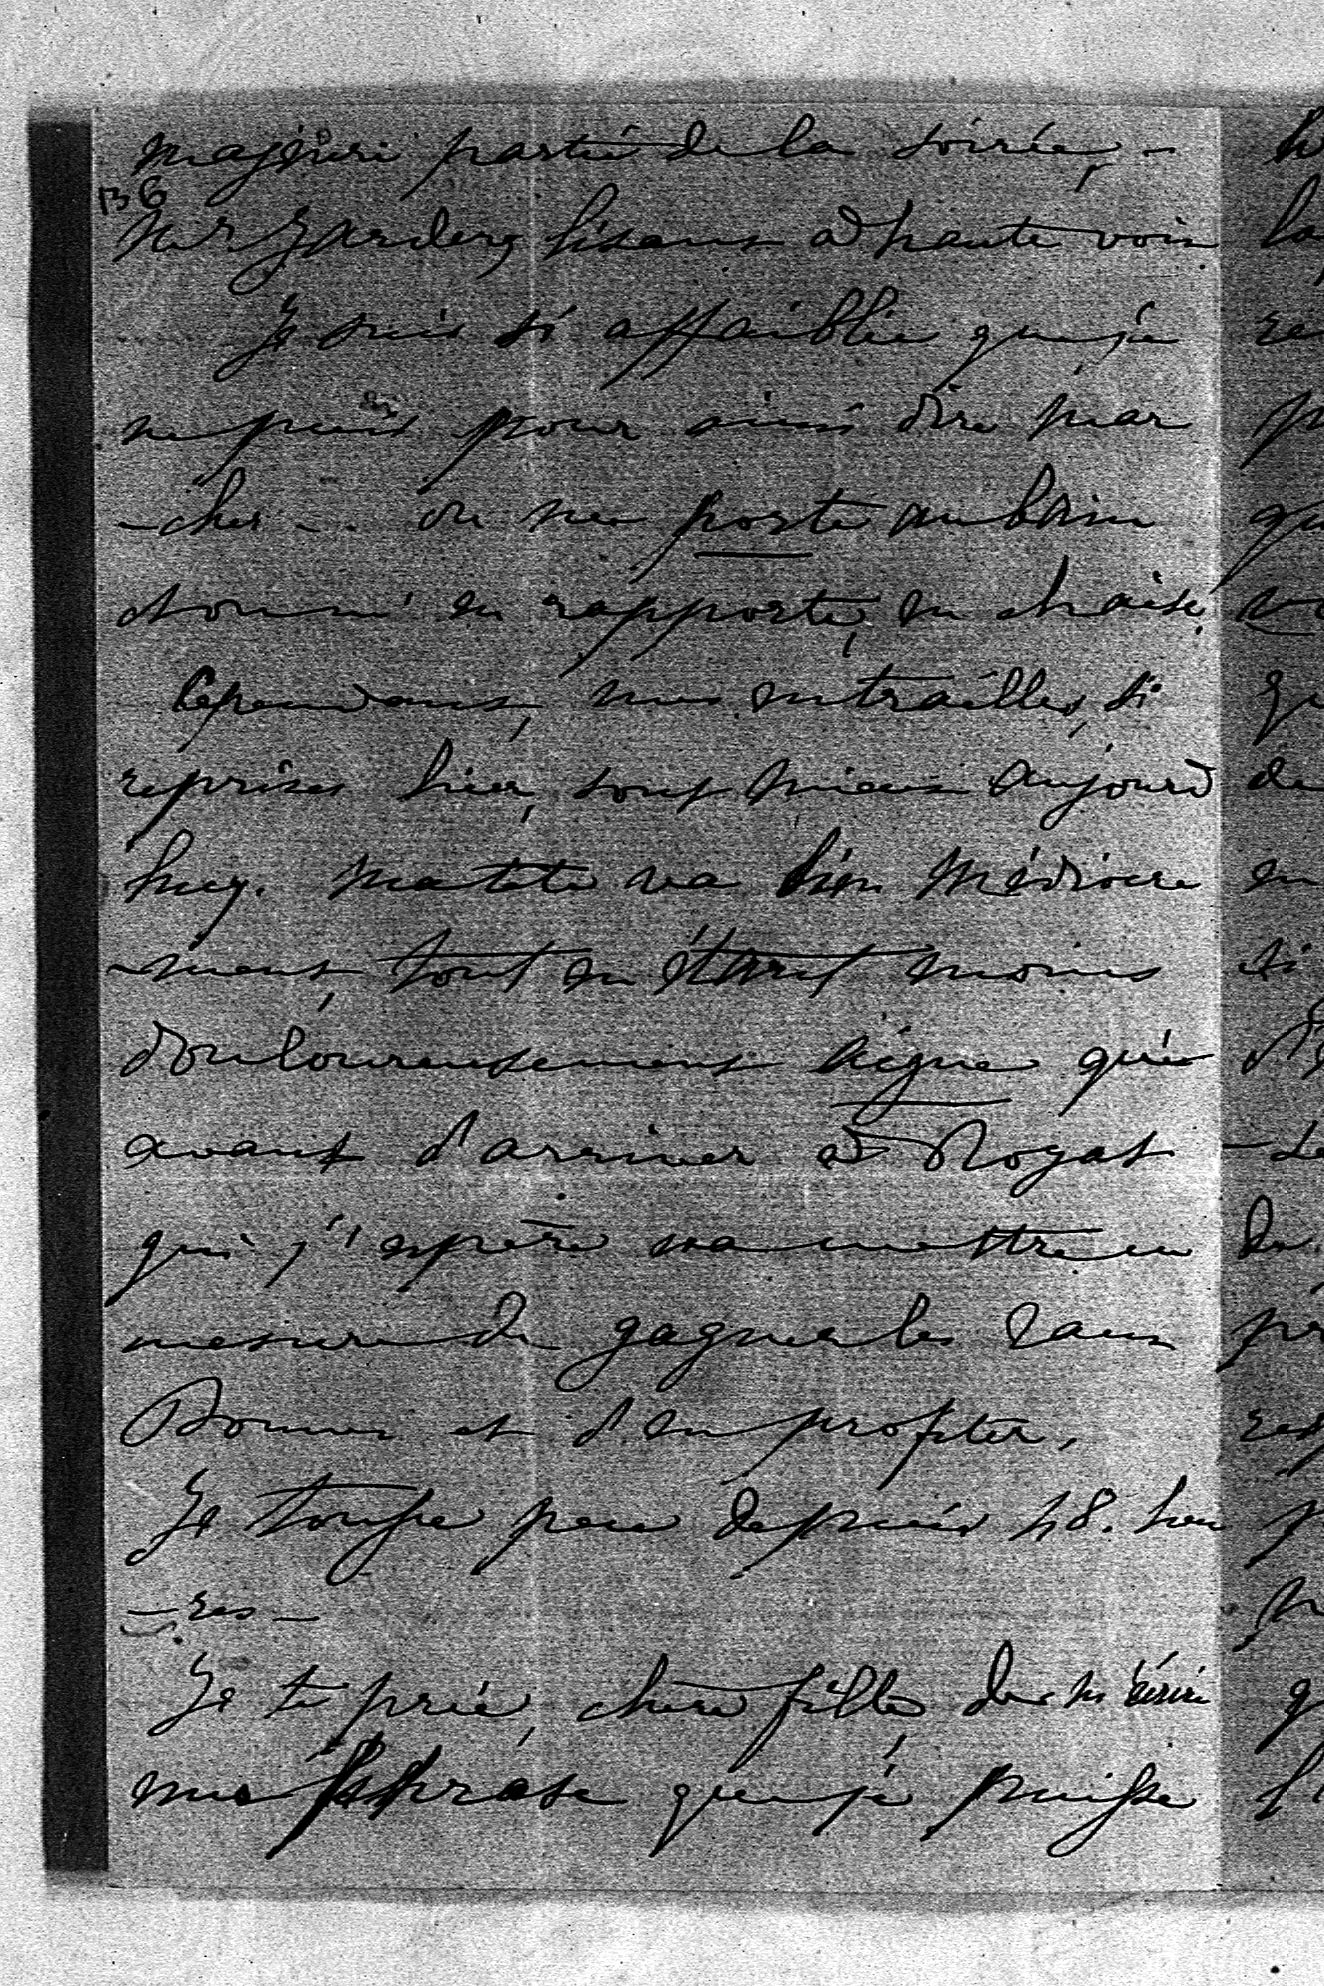 majeure partie de la soirée, -
B6
lisant à haute voix
Je suis si affaiblie que je
ne puis pour ainsi dire mar
-cher -. on me porte au bain
et on m'en rapporte, en chaise.
Cependant, mes entrailles, si
reprises hier, sont mieux aujourd
huy. ma tête va bien médiocre
-ment, tout en étant moins
douloureusement aigue qu'
avant d'arriver à Royat
qui j'espère va mettre en
mesure de gagner les Eaux
Bonnes et d'en profiter.
Je tousse peu depuis 48. heu
-res -
Je te prie, chère fille, de m'écrire
une phrase que je puisse